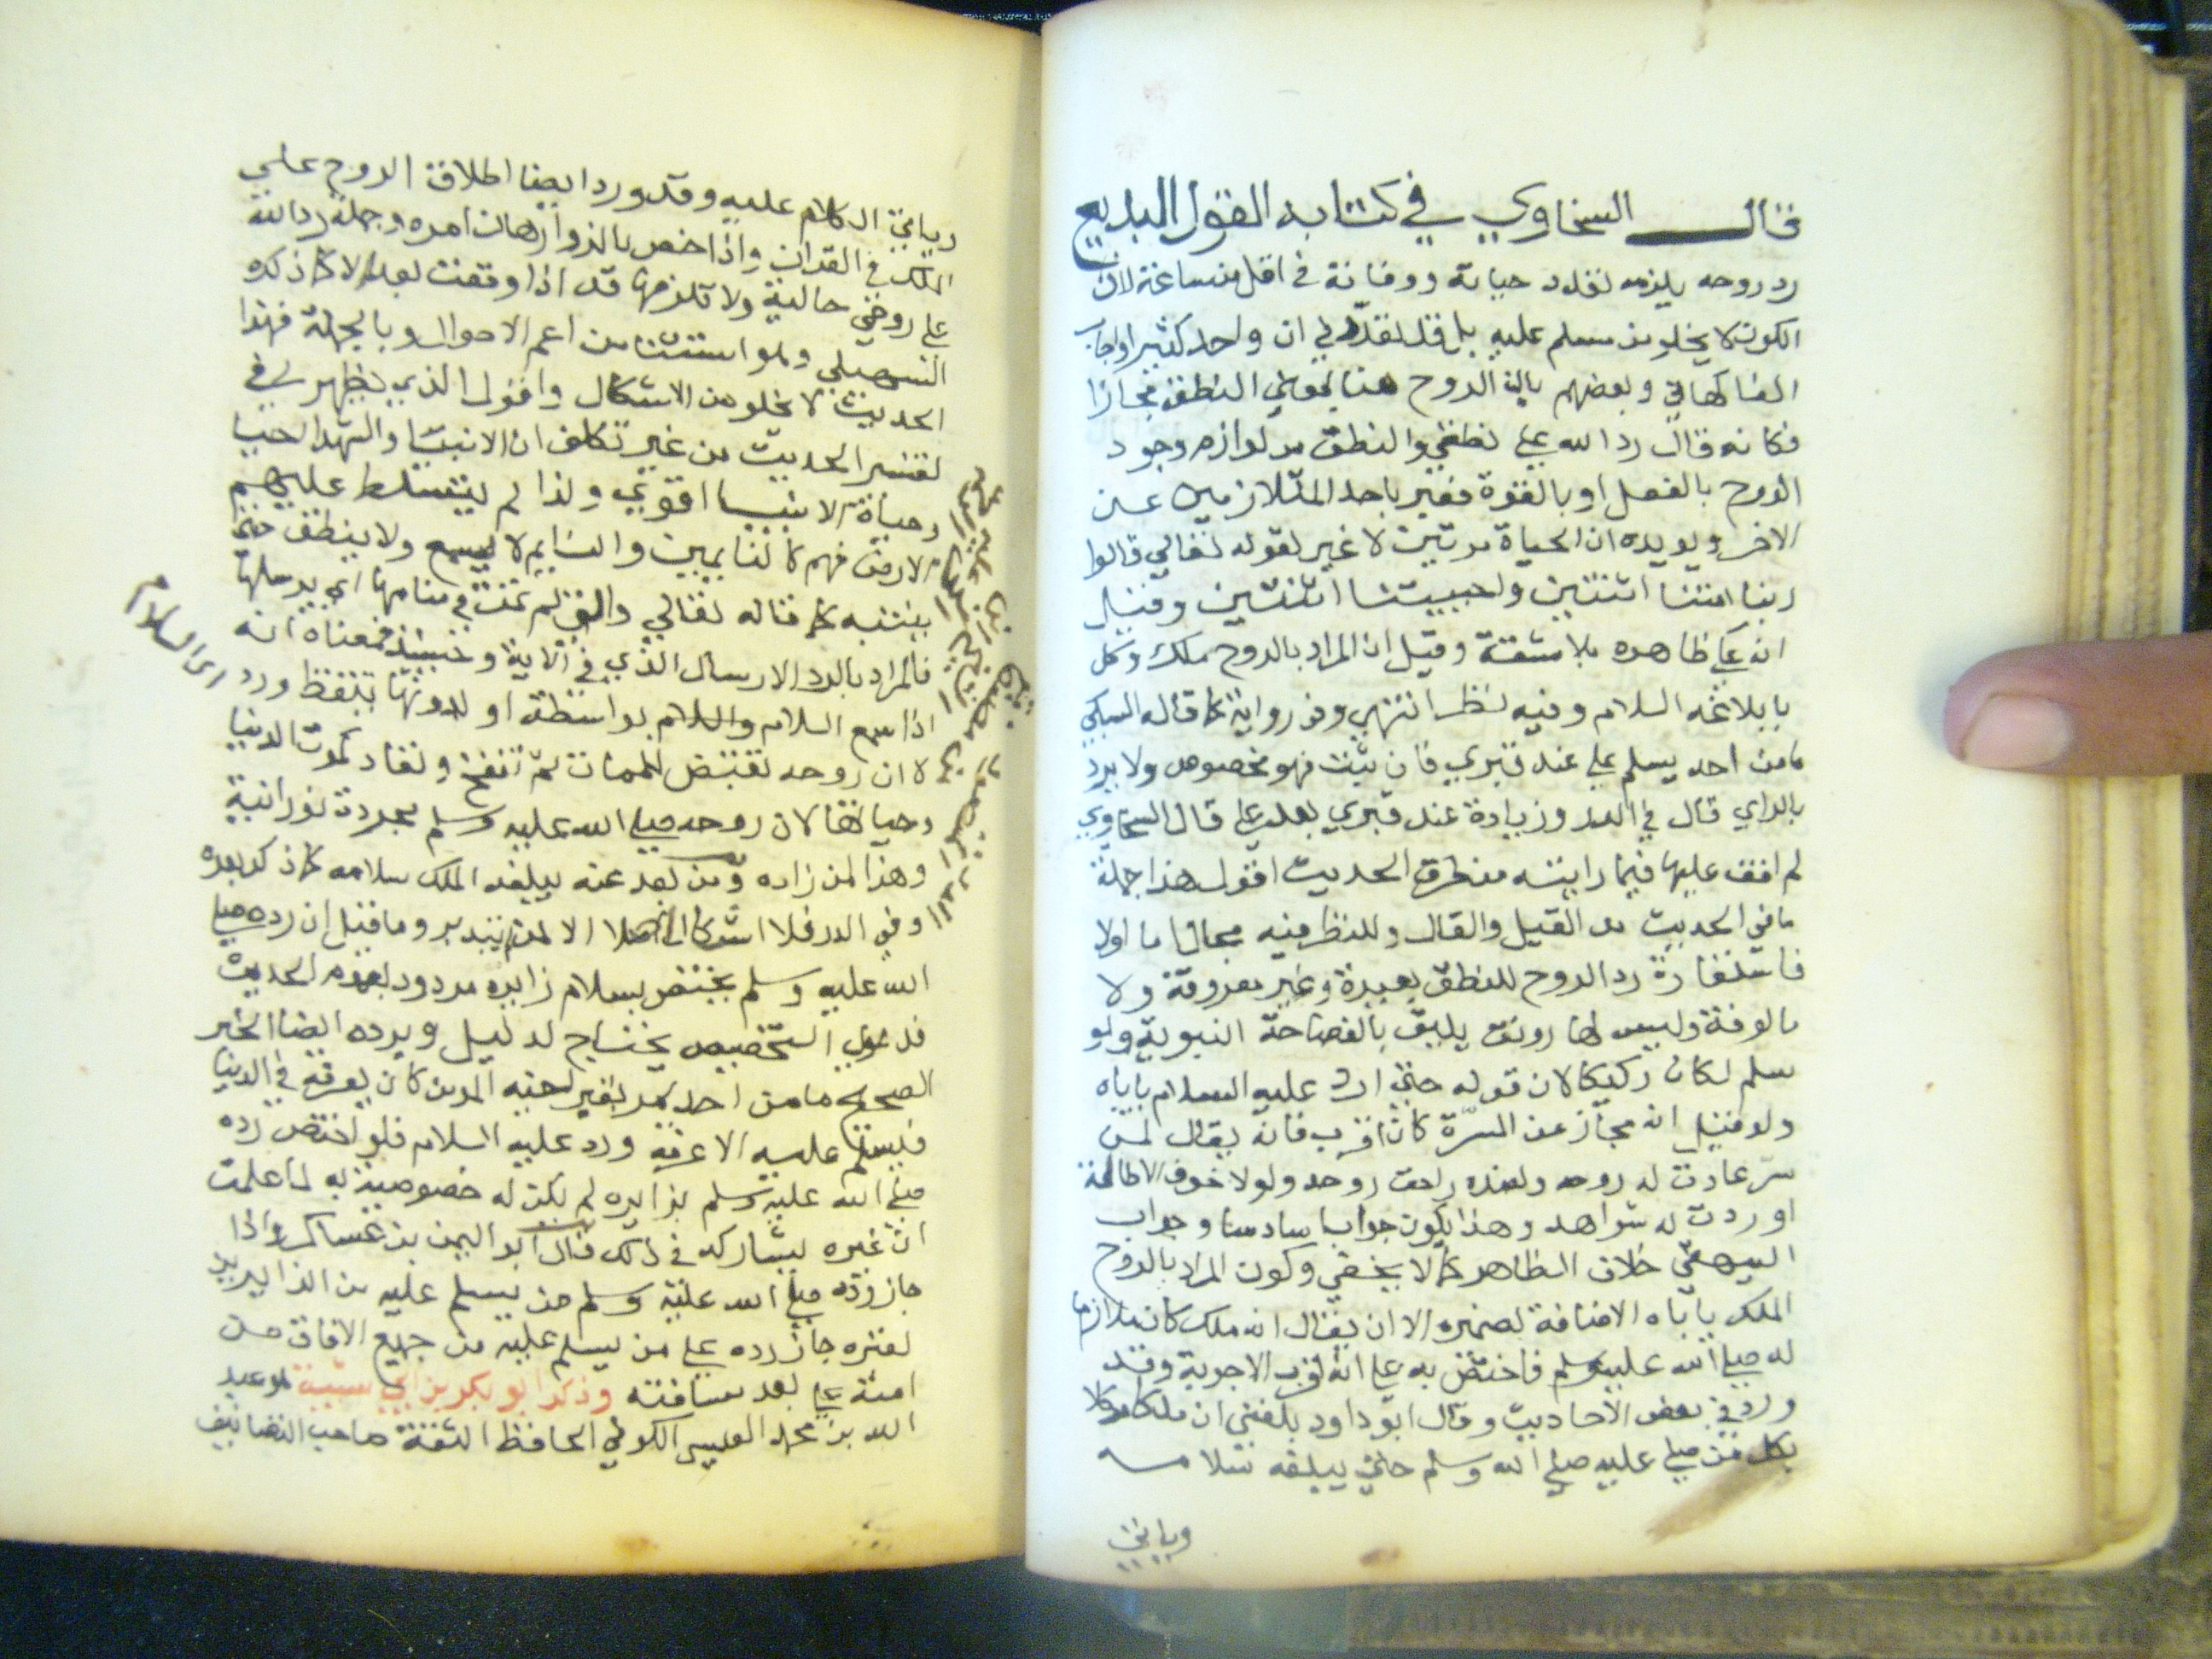 قال السخاوي في كتابه القول البديع
رد روحه يلزمه تعدد حياته ووفاته في اقل من ساعة لان
الكون لا يخلو من مسلم عليه بل قد يتعدد في ان واحد كثيرا واجاب
الفاكهاني وبعضهم بان الروح هنا بمعني النطق مجازا
فكانه قال رد الله علي نطقي والنطق من لوازمه وجود
الروح بالفعل او بالقوة فعبر باحد المتلازمين عن
الاخر ويويده ان الحياة مرتين لا غير لقوله تعالي قالوا
ربنا امتنا اثنتين واحييتنا اثنتين وقيل
انه علي ظاهره بلا مشقة وقيل ان المراد بالروح ملك وكل
بابلاغه السلام وفيه نظر انتهي وفي رواية كما قاله السبكي
ما من احد يسلم علي عند قبري فان ثبت فهو مخصوص ولا يرد
بالراي قال في الدر وزيادة عند قبري بعد علي قال السخاوي
لم اقف عليها فيما رايته من طرق الحديث اقول هذا جملة
ما في الحديث من القيل والقال وللنظر فيه مجال اما اولا
فاستعارة رد الروح للنطق بعيدة وغير معروفة ولا
مالوفة وليس لها رونق يليق بالفصاحة النبوية ولو
سلم لكان ركيكا لان قوله حتي ارد عليه السلام ياباه
ولو قيل انه مجاز عن المسرة كان اقرب فانه يقال لمن
سر عادت له روحه ولضده راحت روحه ولولا خوف الاطالة
اوردت له شواهد وهذا يكون جوابا سادسا وجواب
البيهقي خلاف الظاهر كما لا يخفي وكون المراد بالروح
الملك ياباه الاضافة لضميره الا ان يقال انه ملك كان ملازما
له صلي الله عليه وسلم فاختص به علي انه اقرب الاجوبة وقد
ورد في بعض الاحاديث وقال ابو داود بلغني ان ملكا موكلا
بكل من صلي عليه صلي الله وسلم حتي يبلغه سلامه
وياتي
وياتي الكلام عليه وقد ورد ايضا اطلاق الروح علي
الملك في القران واذا خص بالزوار هان امره وجملة رد الله
علي روحي حالية ولا تلزمها قد اذا وقعت بعد الا كما ذكره
التسهيلي ولو استثنا من اعم الاحوال وبالجملة فهذا
الحديث لا يخلو من الاشكال واقول الذي يظهر لي في
تفسير الحديث من غير تكلف ان الانبيا والشهدا احيا
وحياة الانبيا اقوي ولذا لم يتسلط عليهم
الارض فهم كالنايمين والنايم لا يسمع ولا ينطق حتي
ينتبه كما قال تعالي والتي لم تمت في منامها اي يرسلها
فالمراد بالرد الارسال الذي في الاية وحينئذ فمعناه انه
اذا سمع السلام والسلام بواسطة او بدونها تيقظ ورد
لا ان روحه تقبض للممات ثم تنفخ وتعاد كموت الدنيا
وحياتها لان روحه صلي الله عليه وسلم مجردة نورانية
وهذا لمن زاره ومن بعد عنه يبلغه الملك سلامه كما ذكر بعده
وفي الدر فلا اشكال اصلا الا لمن يتدبر وما قيل ان رده صلي
الله عليه وسلم يختص بسلام زايره مردود بعموم الحديث
فدعوي التخصيص يحتاج لدليل ويرده ايضا الخبر
الصحيح ما من احد يمر بقبر اخيه المومن كان يعرفه في الدنيا
فيسلم عليه الا عرفه ورد عليه السلام فلو اختص رده
صلي الله عليه وسلم بزايره لم يكن له خصوصية به لما علمت
ان غيره يشاركه في ذلك قال ابو اليمن بن عساكر واذا
جاز رده صلي الله عليه وسلم من يسلم عليه من الزايرين
لقبره جاز رده علي من يسلم عليه من جميع الافاق من
امته علي بعد مسافته وذكر ابو بكر بن ابي شيبة ابو عبد
الله بن محمد العبسي الكوفي الحافظ الثقة صاحب التصانيف
اي السلام